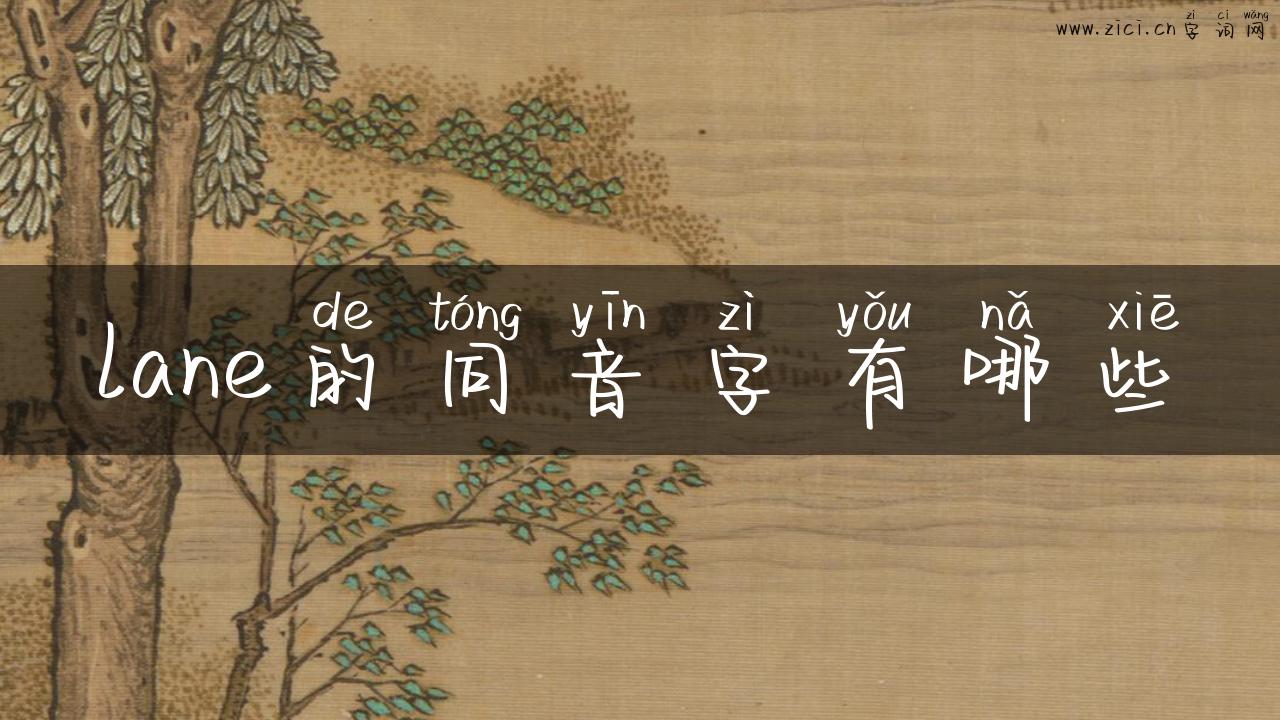 zì cí wǎng
www.zici.cn 字词网
de tóng yīn zì yǒu nǎ xiē
lane的同音字有哪些